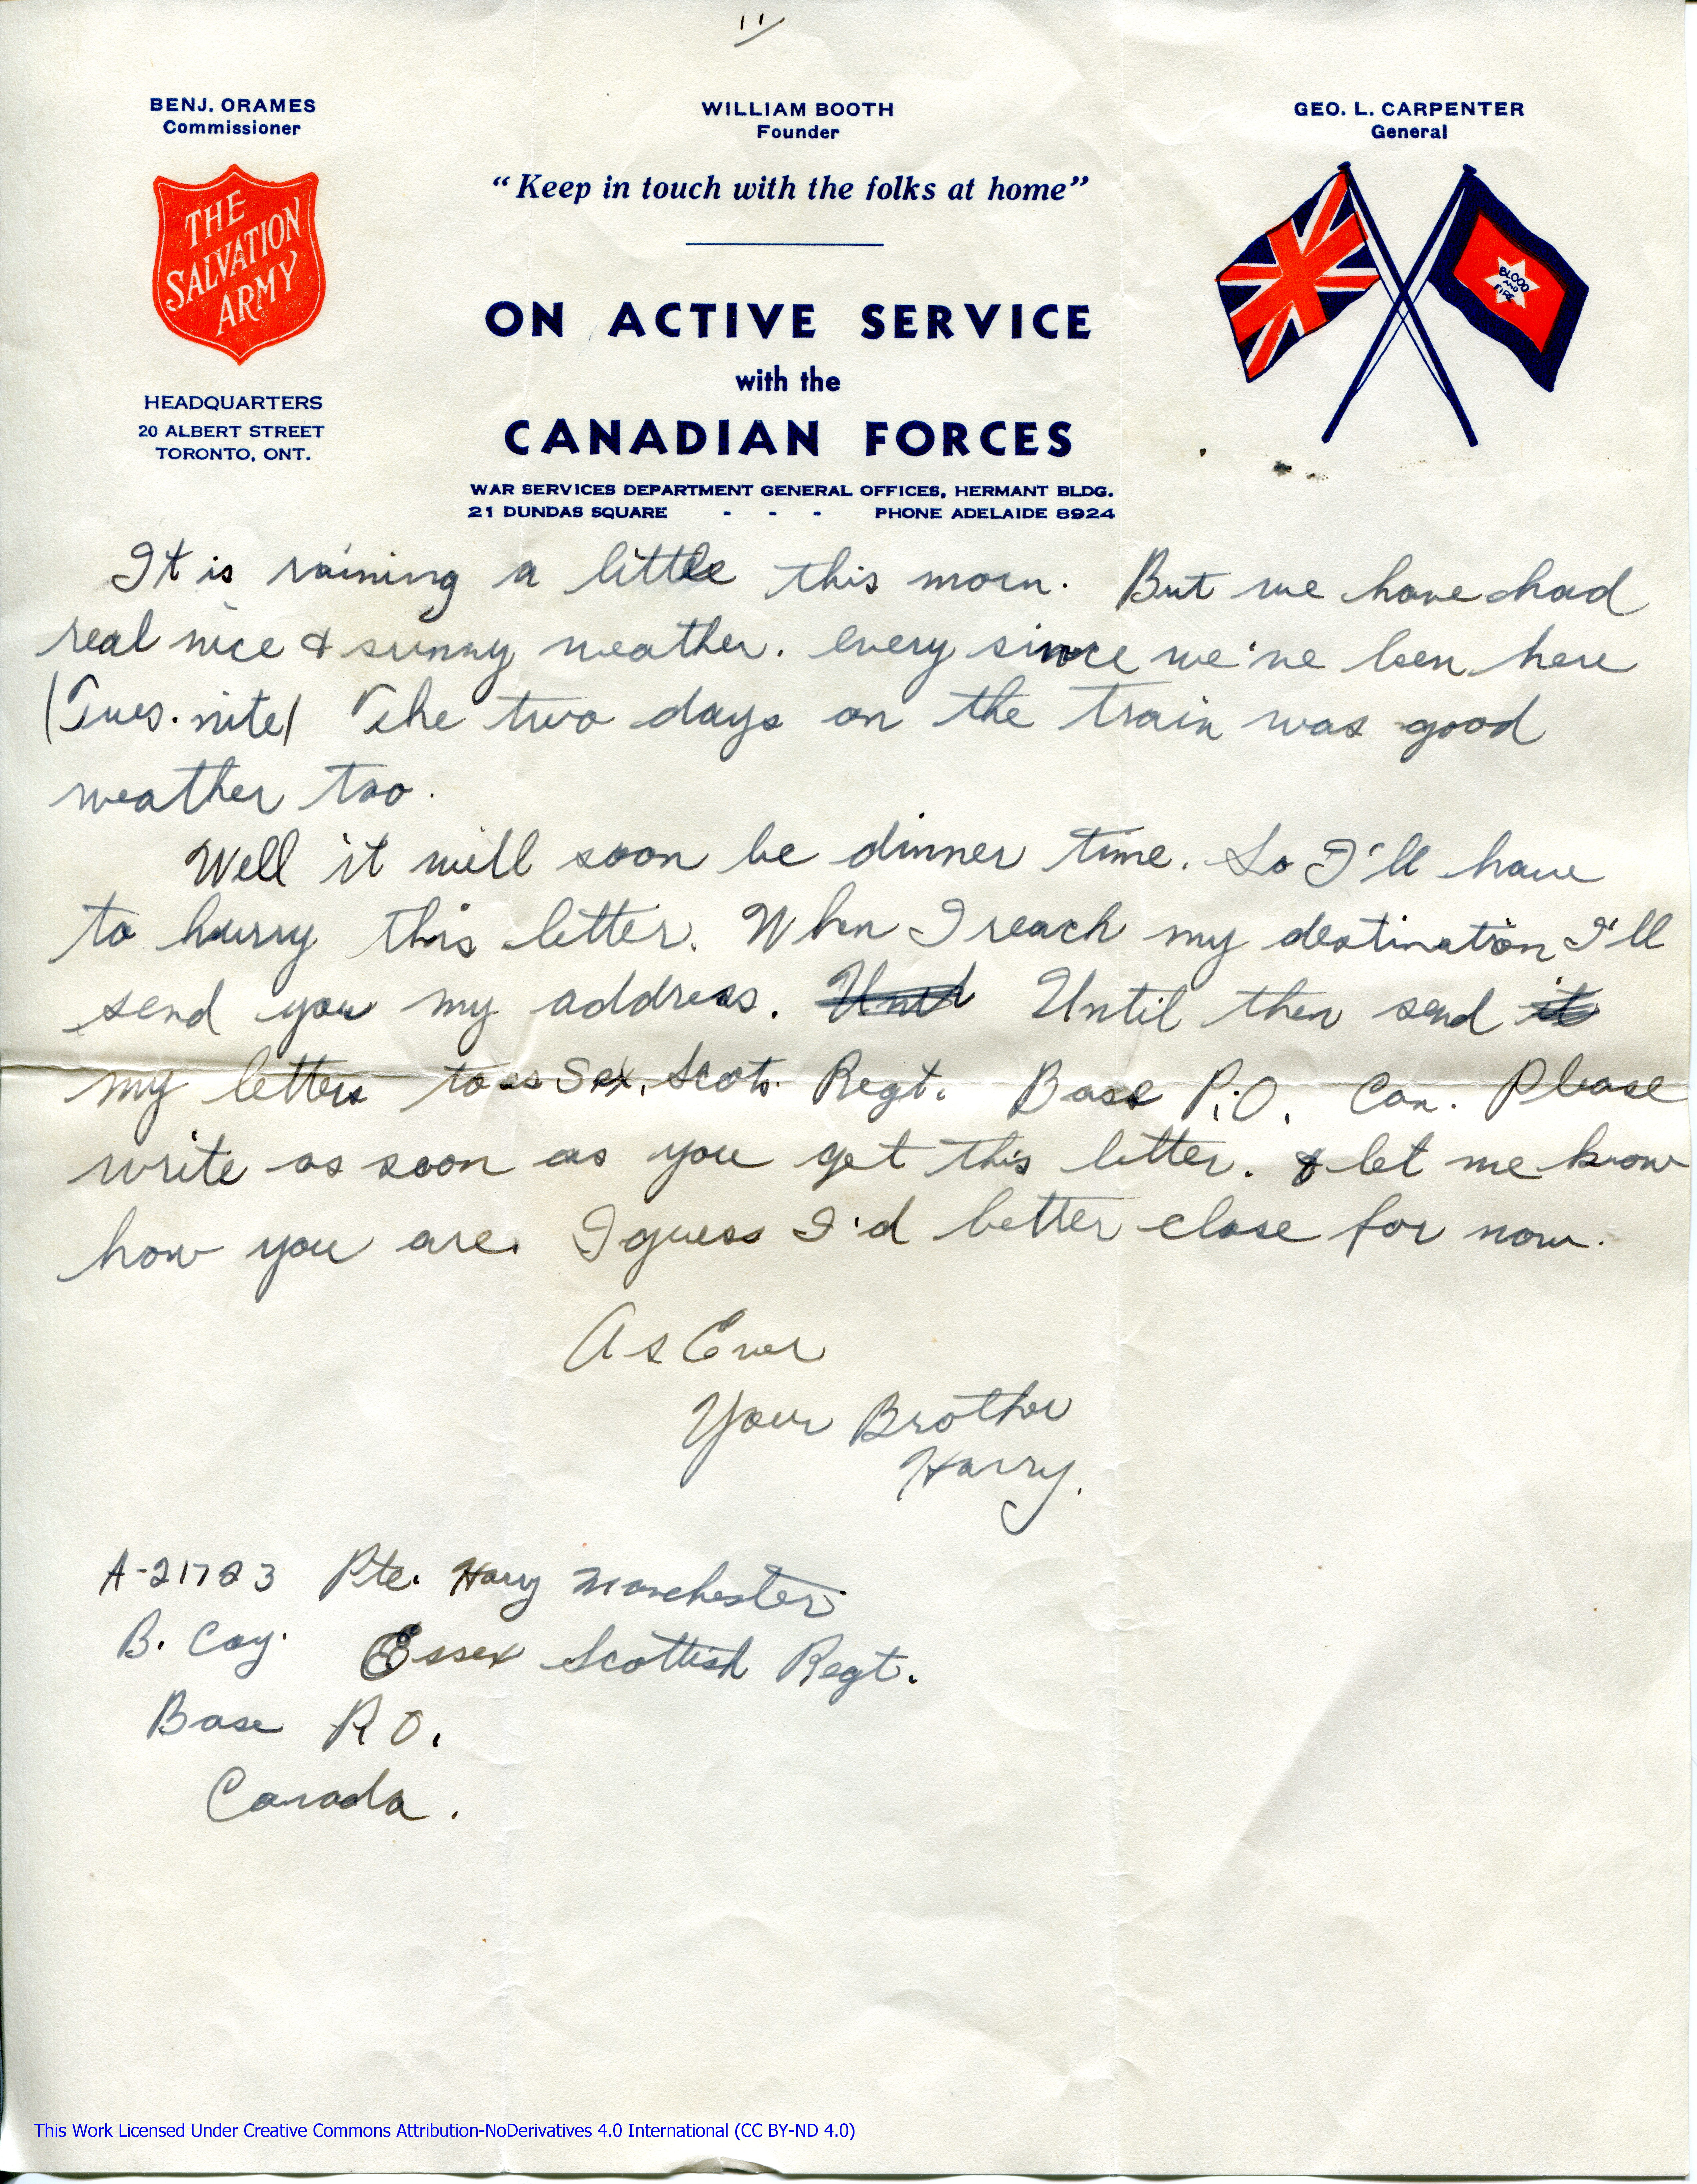 11
BENJ. ORAMES
Commissioner
WILLIAM BOOTH
Founder
GEO. L. CARPENTER
General
"Keep in touch with the folks at home"
THE
SALVATION
ARMY
BLOOD
AND
FIRE
ON ACTIVE SERVICE
with the
CANADIAN FORCES
HEADQUARTERS
20 ALBERT STREET
TORONTO, ONT.
WAR SERVICES DEPARTMENT GENERAL OFFICES, HERMANT BLDG.
21 DUNDAS SQUARE - - - PHONE ADELAIDE 8924
It is raining a little this morn. But we have had
real nice & sunny weather. every since we've been here
(Tues. nite) The two days on the train was good
weather too.
Well it will soon be dinner time. So I'll have
to hurry this letter. When I reach my destination I'll
send you my address. Until Until then send it
my letters to Scots. Regt. Base P.O. Can. Please
write as soon as you get this letter. & let me know
how you are. I guess I'd better close for now.
As Ever
Your Brother
Harry.
A-21723 Pte. Harry Manchester
B. Coy. Essex Scottish Regt.
Base P.O.
Canada.
This Work Licensed Under Creative Commons Attribution-NoDerivatives 4.0 International (CC BY-ND 4.0)